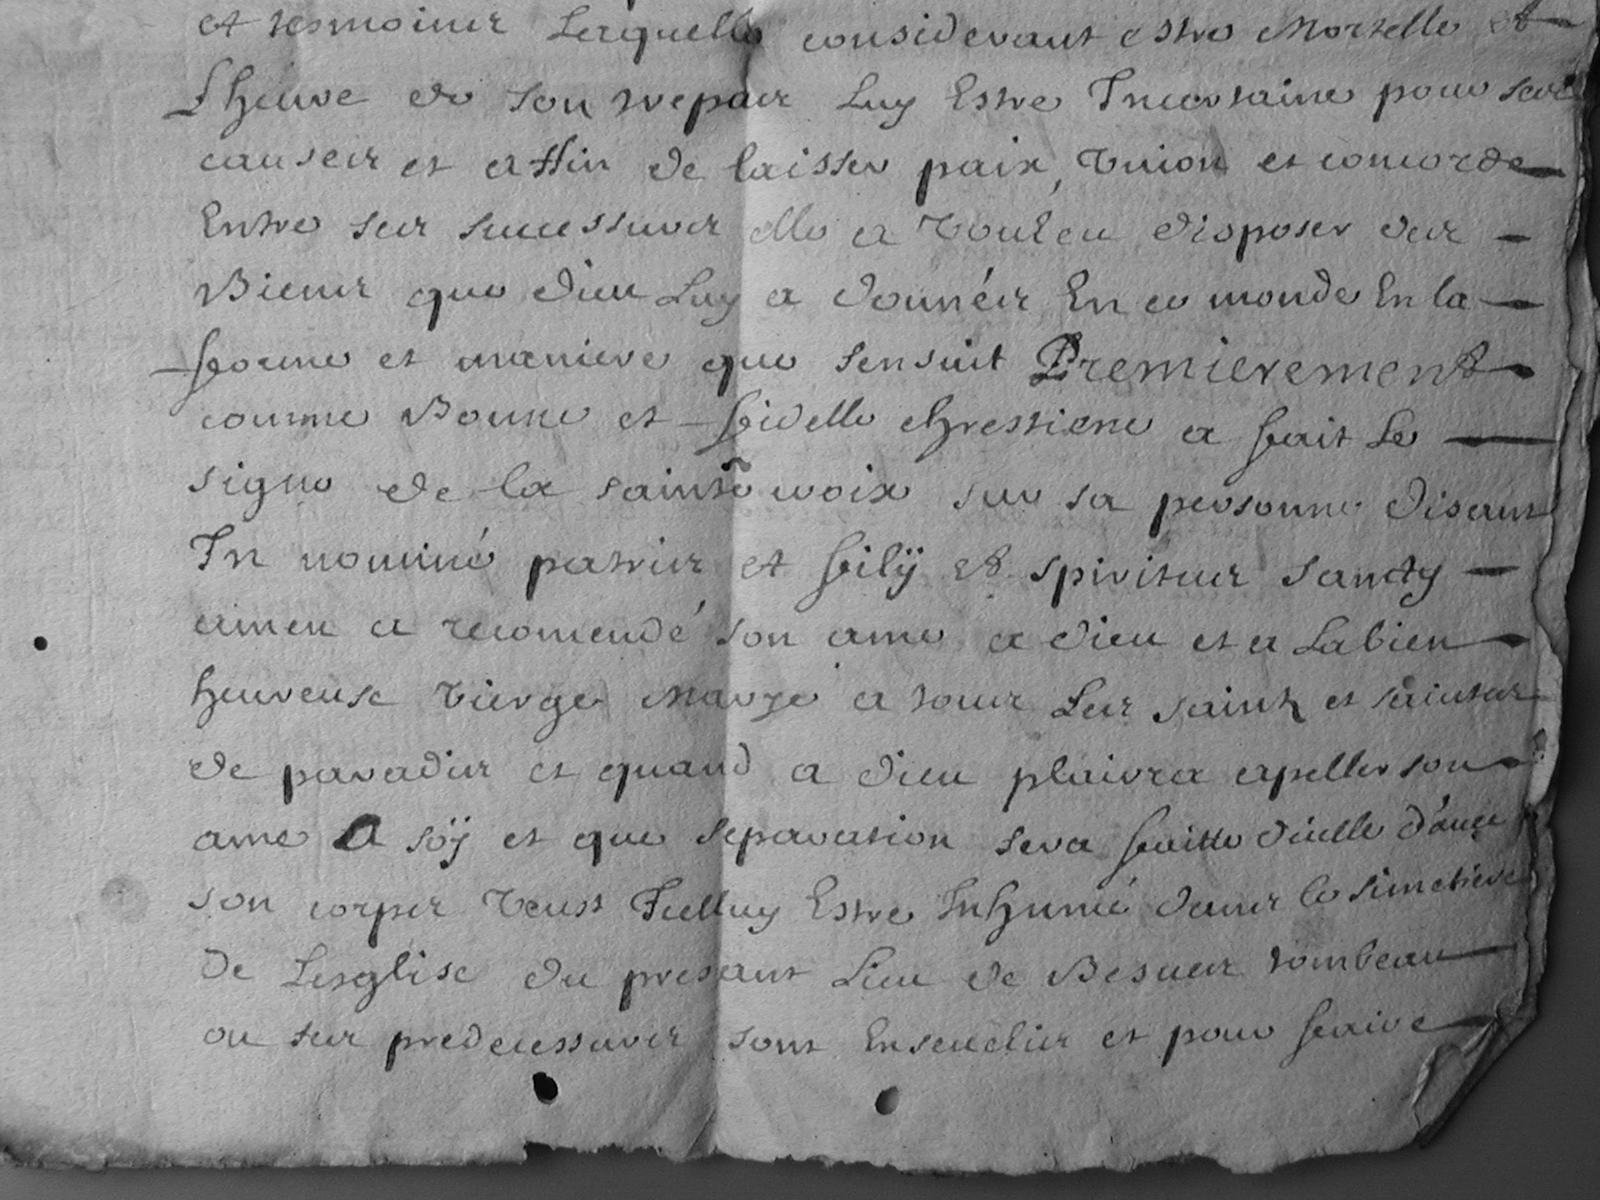 et tesmoins Lesquelle considerant estre Mortelle et
Lheure de son trepas Luy Estre Incertaine pour ses
causes et affin de laisser paix, Vnion et concorde
Entre ses successeurs elle a Vouleu disposer des
Biens que dieu Luy a données En ce monde En la
forme et maniere que sensuit Premierement
comme Bonne et fidelle chrestiene a fait Le
signe de la sainte croix sur sa personne disant
In nominé patris et filÿ et spiritus sancty
amen a recomendé son ame a dieu et a Labien
heureuse Vierge Marye a tous Les saints et saintes
de paradis et quand a dieu plaira apeller son
ame A söÿ et que separation sera faitte dicelle d'auec
son corps Veust Icelluy Estre Inhumé dans le simetiere
de Lesglise du presant Lieu de Besues tombeau
ou ses predecesseurs sont Ensevelis et pour faire